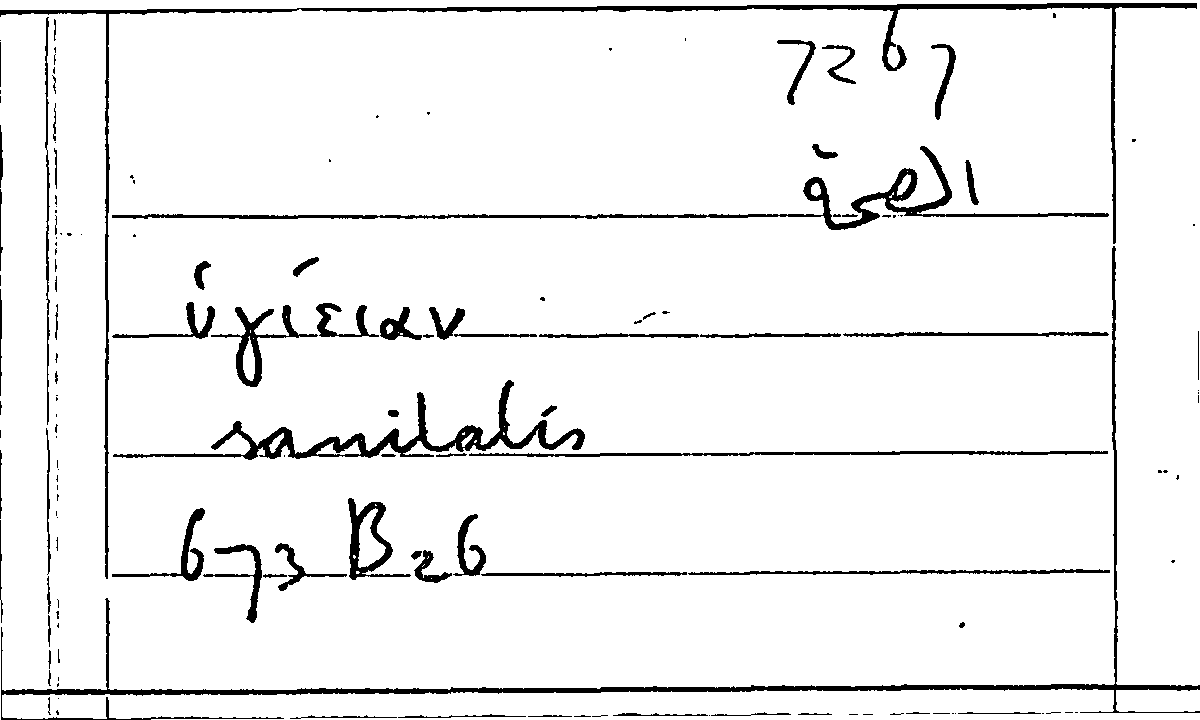 7267
ὑγίειαν
sanitatis
673 B 26